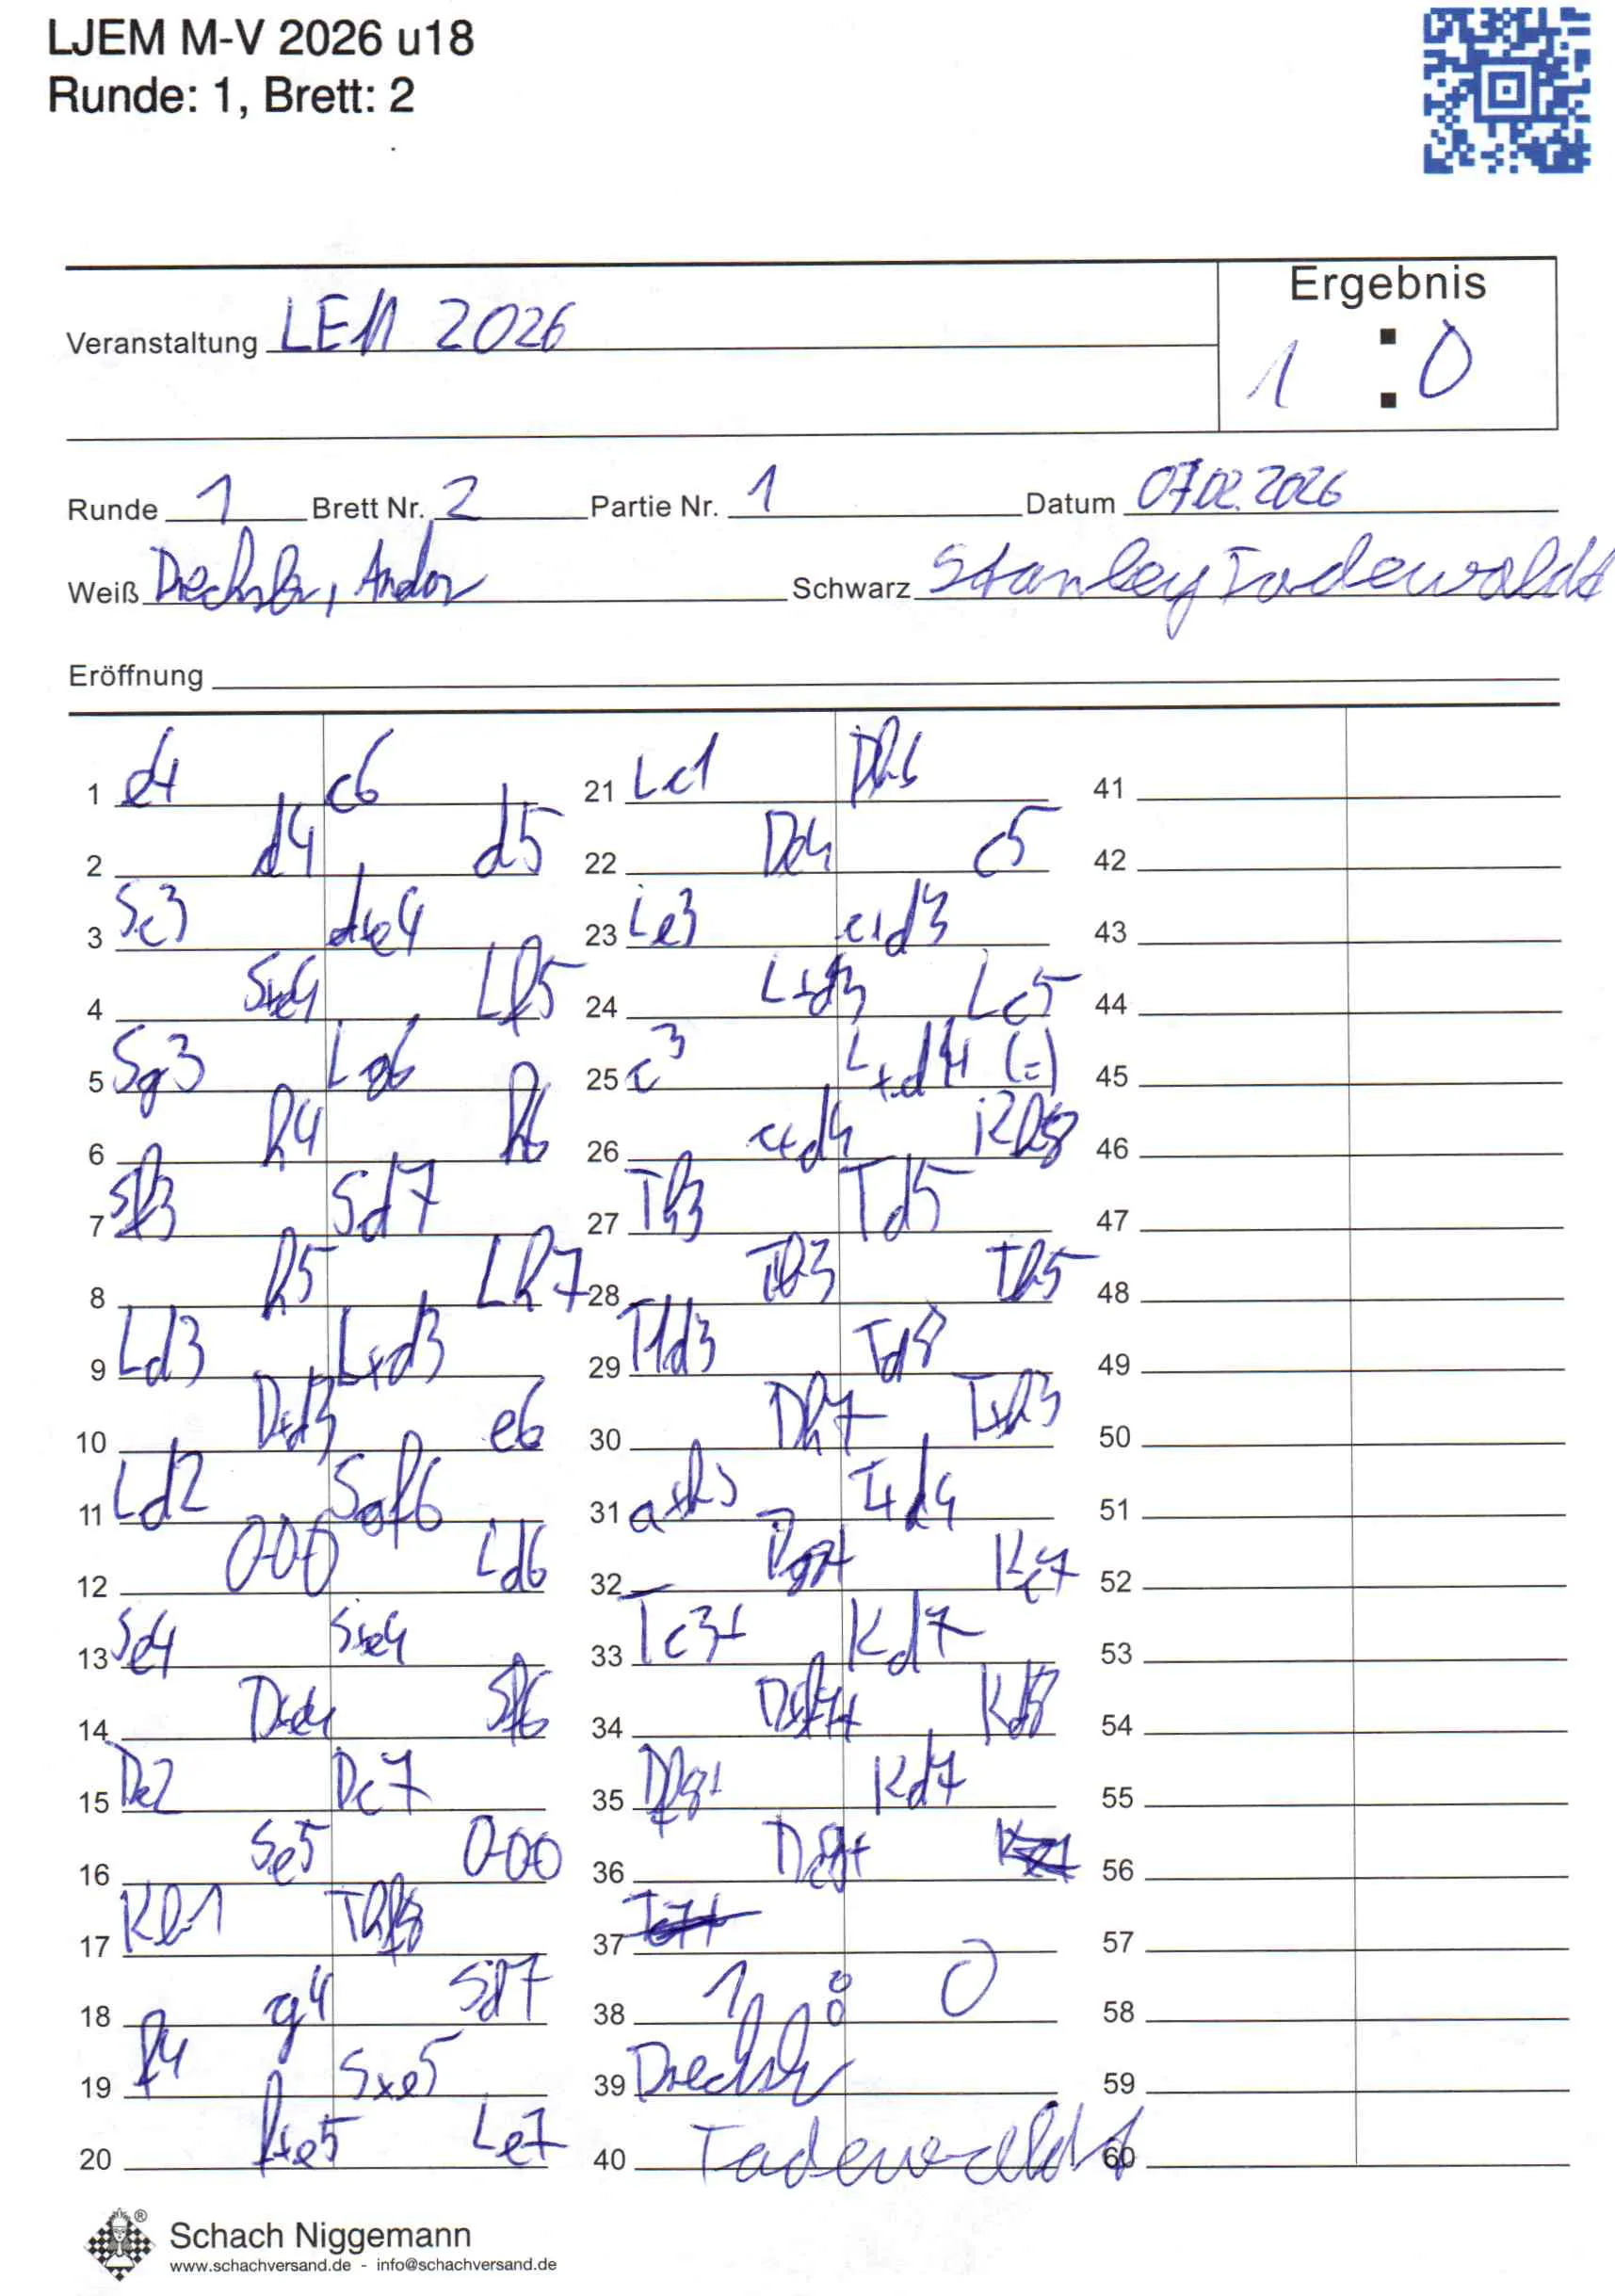 LJEM M-V 2026 u18
Runde: 1, Brett: 2
Ergebnis
Veranstaltung LEM 2026
1 : 0
Runde 1 Brett Nr. 2 Partie Nr. 1 Datum 07.02.2026
Weiß Drechsler, Andor Schwarz Stanley Tadewaldt
Eröffnung
1 e4 c6 21 Lc1 Db6 41
2 d4 d5 22 De4 c5 42
3 Sc3 dxe4 23 Le3 cxd3 43
4 Sxe4 Lf5 24 Lxd3 Lc5 44
5 Sg3 Lg6 25 c3 Lxd4 (=) 45
6 h4 h6 26 cxd4 Kb8 46
7 Sf3 Sd7 27 Th3 Td5 47
8 h5 Lh7 28 Tb3 Tb5 48
9 Ld3 Lxd3 29 T1d3 Td8 49
10 Dxd3 e6 30 Dh7 Txb3 50
11 Ld2 Sgf6 31 axb3 Txd4 51
12 0-0-0 Ld6 32 Dg7 Kc7 52
13 Se4 Sxe4 33 Tc3+ Kd7 53
14 Dxe4 Sf6 34 Dxf7+ Kd8 54
15 De2 Dc7 35 Df8+ Kd7 55
16 Se5 0-00 36 Dg7+ 56
17 Kb1 Thf8 37 57
18 g4 Sd7 38 1 : 0 58
19 f4 Sxe5 39 Drechsler 59
20 fxe5 Le7 40 Tadewaldt 60
Schach Niggemann
www.schachversand.de - info@schachversand.de